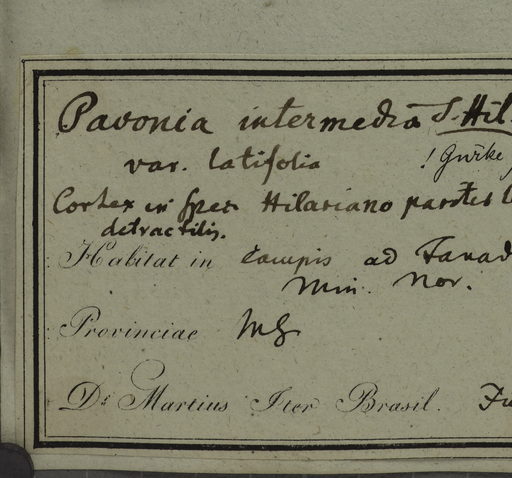 Pavonia intermedia S. Hil.
var. latifolia
! Gürke
Cortex in spec Hilariano
detractilis.
Habitat in campis ad Tanad
Min. Nov.
Provinciae MG
Dr Martius Iter Brasil.